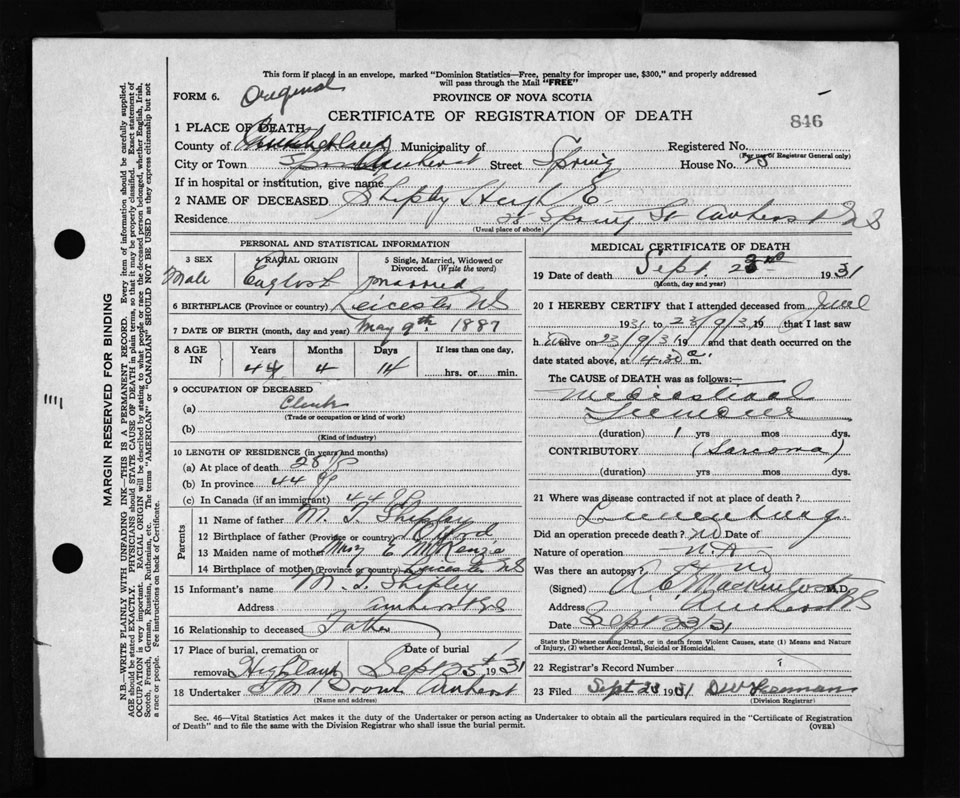 This form if placed in an envelope, marked "Dominion Statistics—Free, penalty for improper use, $300," and properly addressed
will pass through the Mail "FREE"
FORM 6. Original PROVINCE OF NOVA SCOTIA
CERTIFICATE OF REGISTRATION OF DEATH
846
1 PLACE OF DEATH
County of Cumberland Municipality of Registered No.
(For use of Registrar General only)
City or Town Amherst Street Spring House No. 25
If in hospital or institution, give name
2 NAME OF DECEASED Shipley Hugh E.
Residence 25 Spring St Amherst NS
(Usual place of abode)
PERSONAL AND STATISTICAL INFORMATION
3 SEX 4 RACIAL ORIGIN 5 Single, Married, Widowed or Divorced. (Write the word)
Male English Married
6 BIRTHPLACE (Province or country) Leicester NS
7 DATE OF BIRTH (month, day and year) May 9th 1887
8 AGE IN Years Months Days If less than one day,
44 4 14 hrs. or min.
9 OCCUPATION OF DECEASED
(a) Clerk
(Trade or occupation or kind of work)
(b)
(Kind of industry)
10 LENGTH OF RESIDENCE (in years and months)
(a) At place of death 28
(b) In province 44
(c) In Canada (if an immigrant) 44
Parents
11 Name of father M. T. Shipley
12 Birthplace of father (Province or country) Oxford
13 Maiden name of mother Mary E McKenzie
14 Birthplace of mother (Province or country) Leicester NS
15 Informant's name M. T. Shipley
Address Amherst NS
16 Relationship to deceased Father
17 Place of burial, cremation or removal Date of burial
Highland Sept 25th 1931
18 Undertaker Brown Amherst
(Name and address)
MEDICAL CERTIFICATE OF DEATH
19 Date of death Sept. 23rd 1931
(Month, day and year)
20 I HEREBY CERTIFY that I attended deceased from June
1931 to 23/9/31 19 that I last saw
h alive on 23/9/31 19 and that death occurred on the
date stated above, at 4.30 a m.
The CAUSE OF DEATH was as follows:—
Mediastinal
(duration) 1 yrs mos dys.
CONTRIBUTORY (Sarcoma)
(duration) yrs mos dys.
21 Where was disease contracted if not at place of death?
Lunenburg
Did an operation precede death? No Date of
Nature of operation
Was there an autopsy? No
(Signed) M.D.
Address Amherst NS
Date Sept 23/31
State the Disease causing Death, or in death from Violent Causes, state (1) Means and Nature
of Injury, (2) whether Accidental, Suicidal or Homicidal.
22 Registrar's Record Number
23 Filed Sept 23 1931
(Division Registrar)
Sec. 46—Vital Statistics Act makes it the duty of the Undertaker or person acting as Undertaker to obtain all the particulars required in the "Certificate of Registration
of Death" and to file the same with the Division Registrar who shall issue the burial permit. (OVER)
MARGIN RESERVED FOR BINDING
N.B.—WRITE PLAINLY WITH UNFADING INK—THIS IS A PERMANENT RECORD. Every item of information should be carefully supplied.
AGE should be stated EXACTLY. PHYSICIANS should STATE CAUSE OF DEATH in plain terms, so that it may be properly classified. Exact statement of
OCCUPATION is very important. RACIAL ORIGIN will be described by stating to what people or race the deceased person belonged, whether English, Irish,
Scotch, French, German, Russian, Ruthenian, etc. The terms "AMERICAN" or "CANADIAN" SHOULD NOT BE USED as they express citizenship but not
a race or people. Fee instructions on back of Certificate.